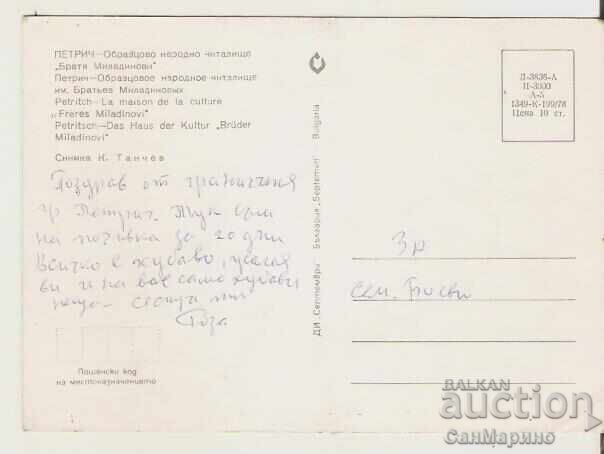 ПЕТРИЧ—Образцово народно читалище
„Братя Миладинови"
Петрич—Образцовое народное читалище
им. Братьев Миладиновых
Petritch—La maison de la culture
„Freres Miladinovi"
Petritsch—Das Haus der Kultur „Brüder
Miladinovi"
Снимка К. Танчев
Поздрав от граничния
гр Петрич. Тук съм
на почивка за 20 дни
Всичко е хубаво, желая
ви и на вас само хубави
неща
Роза
Пощенски код
на местоназначението
ДИ „Септември" България „Septemvri" Bulgaria
Д-3836-А
П-3000
А-5
1349-К-199/78
Цена 10 ст.
Зр
сем. Боеви
BALKAN
auction
СанМарино